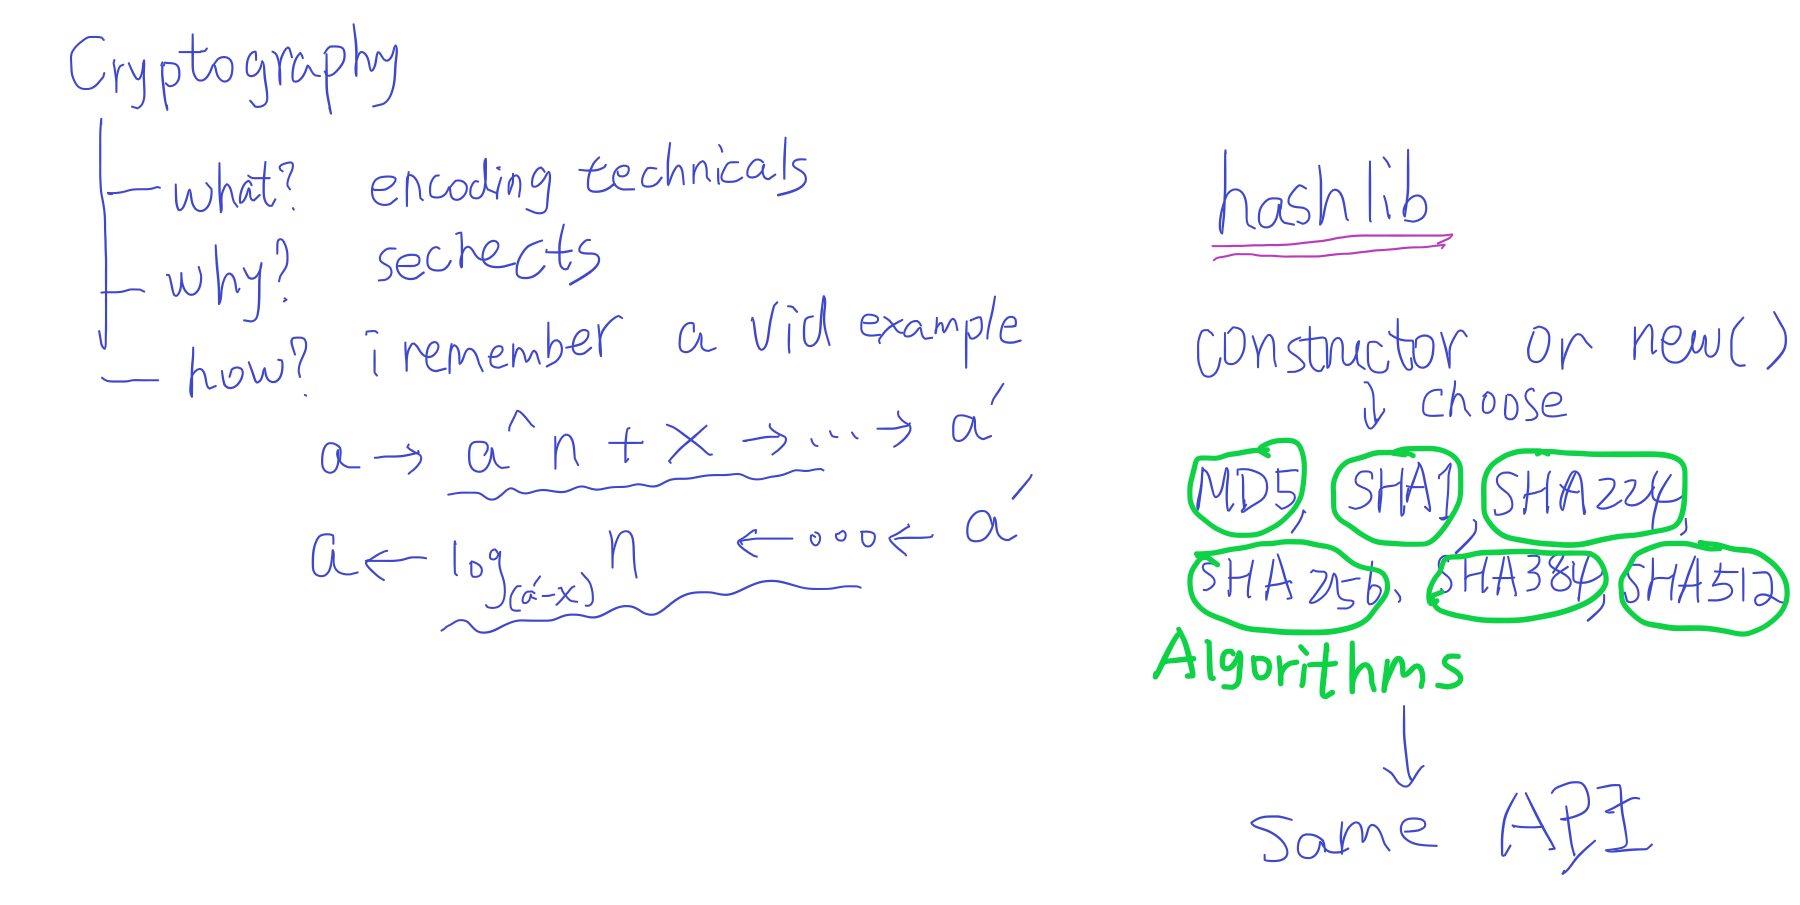 Cryptography
what? encoding technicals
why? sechects
how? i remember a vid example
a → a^n + x → ... → a′
a ← log(a′-x) n ← ... ← a′
hashlib
constructor or new()
↓ choose
MD5, SHA1, SHA224,
SHA256, SHA384, SHA512
Algorithms
↓
Same API